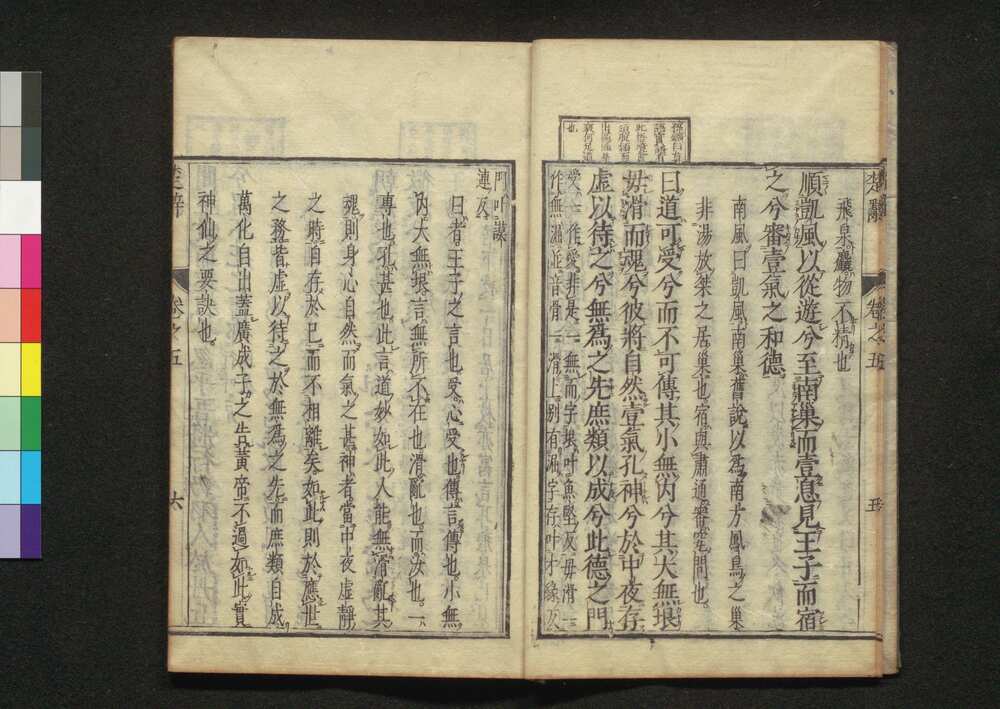 楚辭
卷之五
五
飛泉麗物不精也
順凱風以從遊兮至南巢而壹息見王子而宿
之兮審壹氣之和德
南風曰凱風南巢舊說以爲南方鳳鳥之巢
非湯放桀之居巢也宿與肅通審究問也
曰道可受兮而不可傳其小無内兮其大無垠
毋滑而魂兮彼將自然壹氣孔神兮於中夜存
虛以待之兮無爲之先庶類以成兮此德之門
受一作愛非是一無而字垠叶魚堅反毋滑一
作無淈並音骨一滑上別有淈字存叶才緣反
門叶謨
連反
曰者王子之言也受心受也傳言傳也小無
内大無垠言無所不在也滑亂也而汝也一
專也孔甚也此言道妙如此人能無滑亂其
魂則身心自然而氣之甚神者當中夜虛靜
之時自存於已而不相離矣如此則於應世
之務皆虛以待之於無爲之先而庶類自成
萬化自出蓋廣成子之告黃帝不過如此實
神仙之要訣也
楚辭
卷之五
六